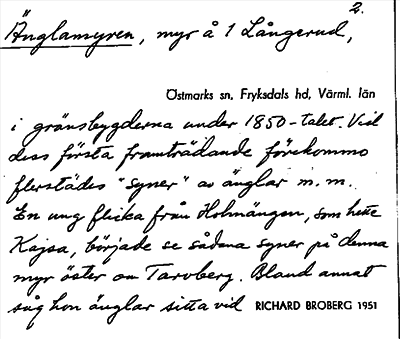 2.
Änglamyren, myr å 1 Långerud,
Östmarks sn, Fryksdals hd, Värml. län
i gränsbygderna under 1850-talet. Vid
dess första framträdande förekommo
flerstädes "syner" av änglar m.m.
En ung flicka från Holmängen, som hette
Kajsa, började se sådana syner på denna
myr öster om Tarvberg. Bland annat
såg hon änglar sitta vid RICHARD BROBERG 1951